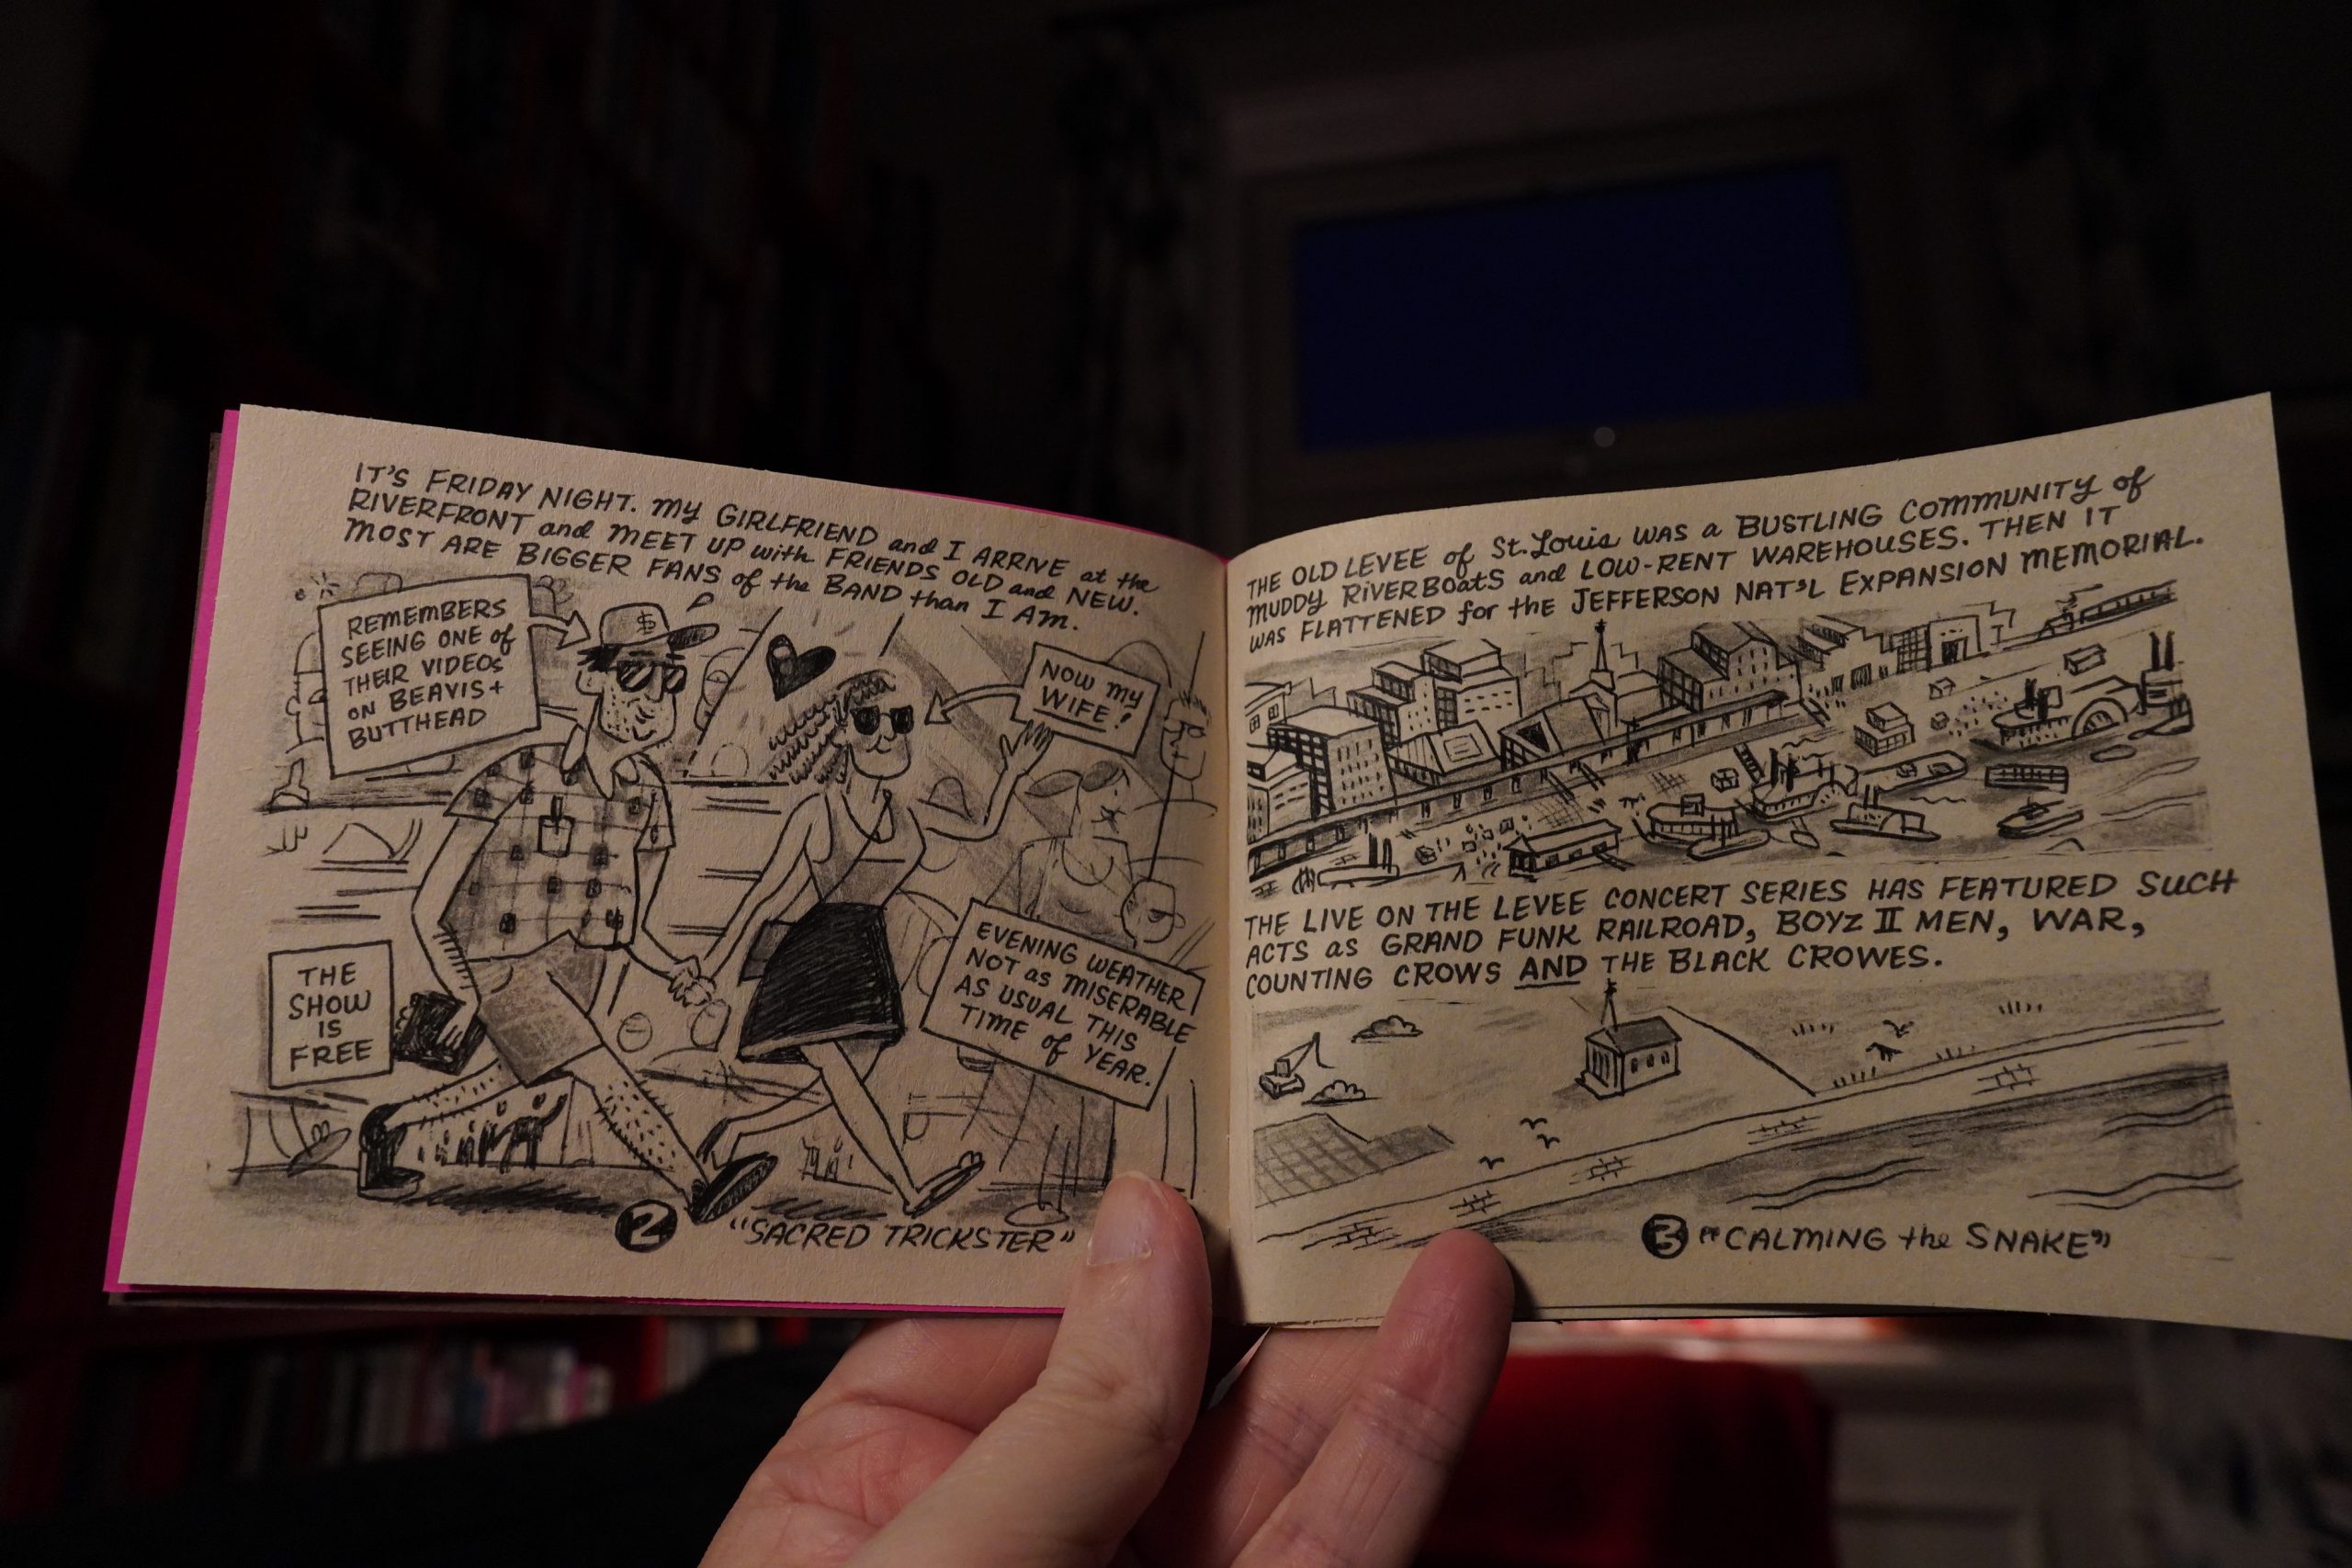 IT'S FRIDAY NIGHT. MY GIRLFRIEND and I ARRIVE at the
RIVERFRONT and MEET UP with FRIENDS OLD and NEW.
MOST ARE BIGGER FANS of the BAND than I AM.
REMEMBERS
SEEING ONE of
THEIR VIDEOS
ON BEAVIS +
BUTTHEAD
$
NOW MY
WIFE!
THE
SHOW
IS
FREE
EVENING WEATHER
NOT as MISERABLE
AS USUAL THIS
TIME of YEAR.
2 "SACRED TRICKSTER"
THE OLD LEVEE of St. Louis WAS a BUSTLING COMMUNITY of
MUDDY RIVERBOATS and LOW-RENT WAREHOUSES. THEN IT
WAS FLATTENED for the JEFFERSON NAT'L EXPANSION MEMORIAL.
THE LIVE ON THE LEVEE CONCERT SERIES HAS FEATURED SUCH
ACTS as GRAND FUNK RAILROAD, BOYZ II MEN, WAR,
COUNTING CROWS AND THE BLACK CROWES.
3 "CALMING the SNAKE"